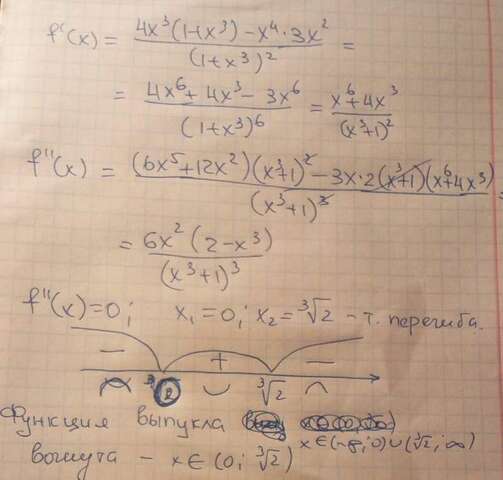 f'(x) = (4x³(1+x³) - x⁴·3x²)/(1+x³)² =
= (4x⁶+4x³-3x⁶)/(1+x³)⁶ = (x⁶+4x³)/(x³+1)²
f''(x) = ((6x⁵+12x²)(x³+1)² - 3x·2(x³+1)(x⁶+4x³))/(x³+1)³
= 6x²(2-x³)/(x³+1)³
f''(x)=0; x₁=0; x₂=³√2 - т. перегиба.
- + -
³√2
Функция выпукла
x∈(-∞;0)∪(³√2;∞)
вогнута - x∈(0;³√2)